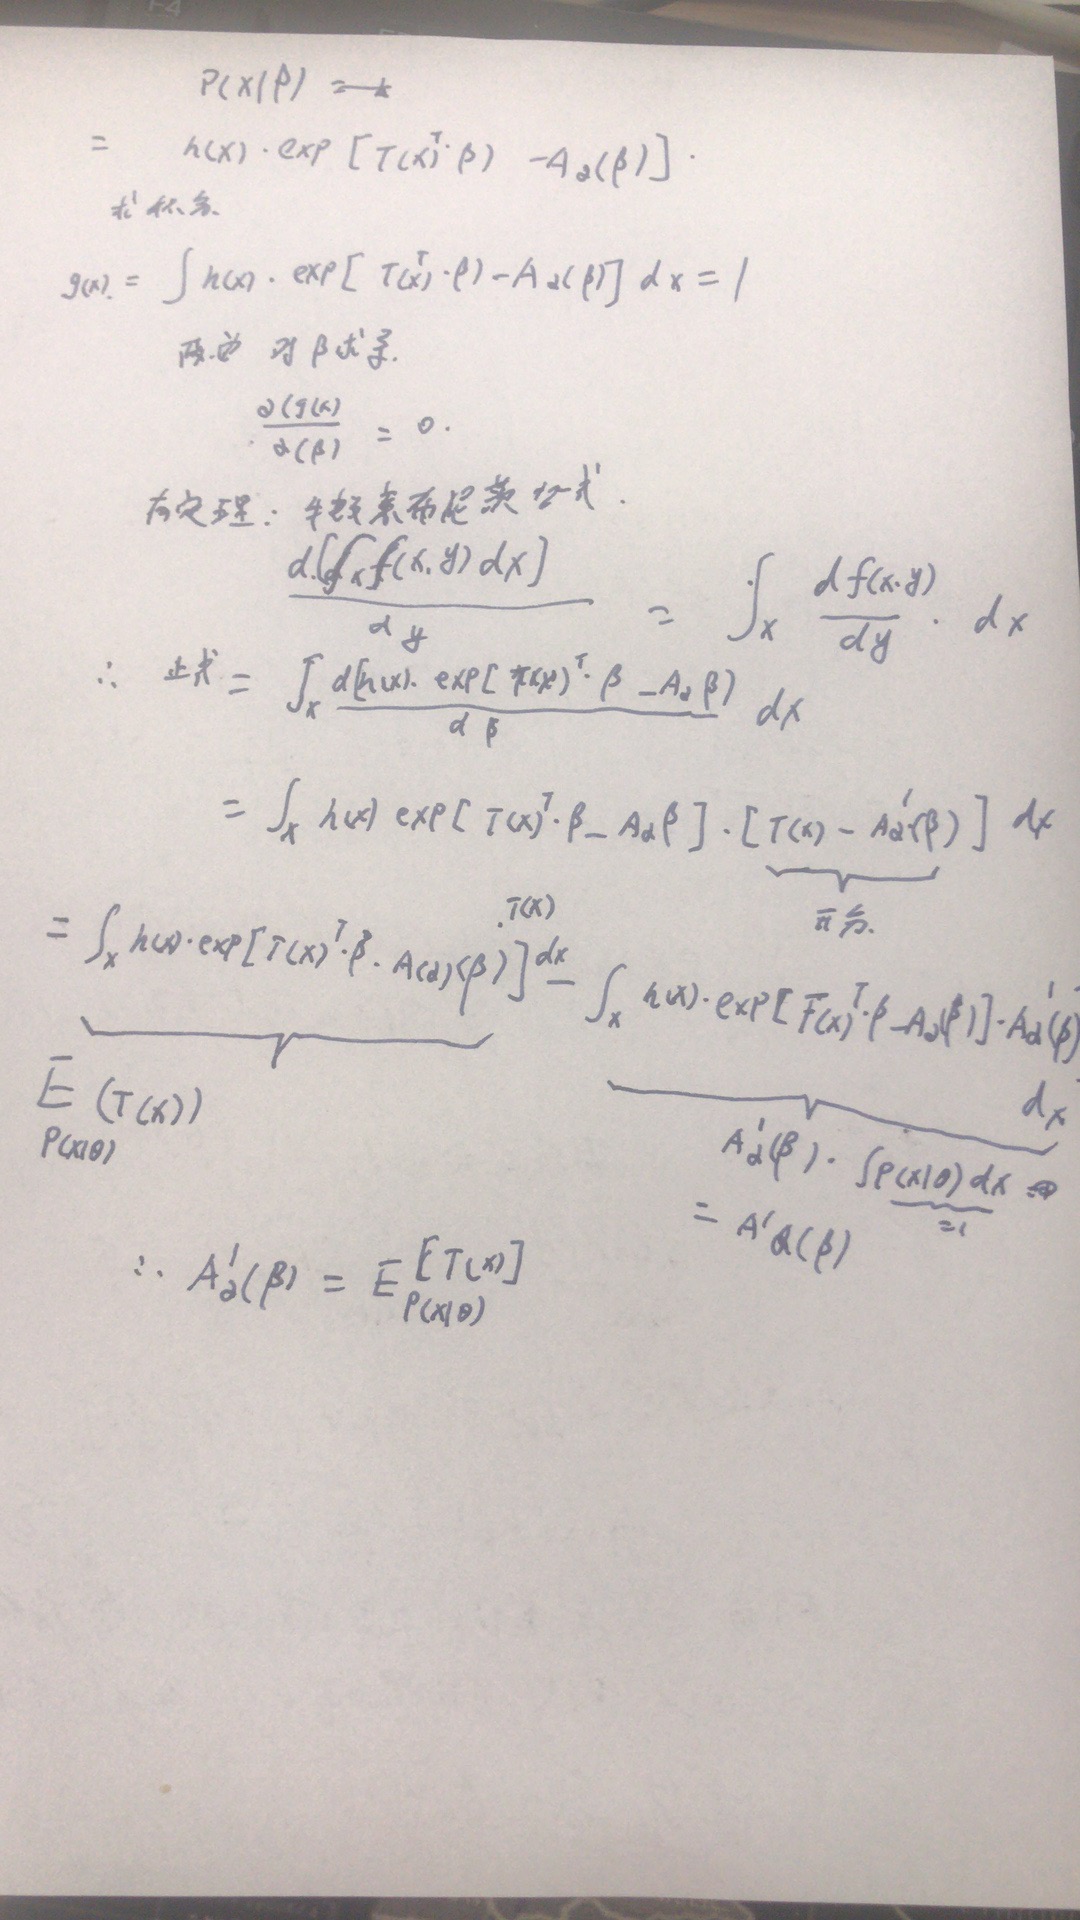 P(x|β)
= h(x)·exp[T(x)ᵀ·β) -A₂(β)].
求积分.
g(x). = ∫h(x)·exp[T(x)ᵀ·β)-A₂(β)] dx = 1
两边 对β求导.
∂(g(x) / ∂(β) = 0.
有定理: 牛顿莱布尼茨公式.
d[∫ₓf(x,y)dx] / dy = ∫ₓ df(x.y)/dy · dx
∴ 上式 = ∫ₓ d[h(x)·exp[T(x)ᵀ·β -A₂β) / dβ dx
= ∫ₓ h(x) exp[T(x)ᵀ·β - A₂β]·[T(x) - A₂'(β)] dx
·T(x)
= ∫ₓ h(x)·exp[T(x)ᵀ·β - A(2)(β)]dx - ∫ₓ h(x)·exp[T(x)ᵀ·β -A₂(β)]·A₂'(β)
dx
E (T(x))
P(x|θ)
A₂'(β)·∫P(x|θ)dx
=1
= A'₂(β)
∴ A₂'(β) = E [T(x)]
P(x|θ)